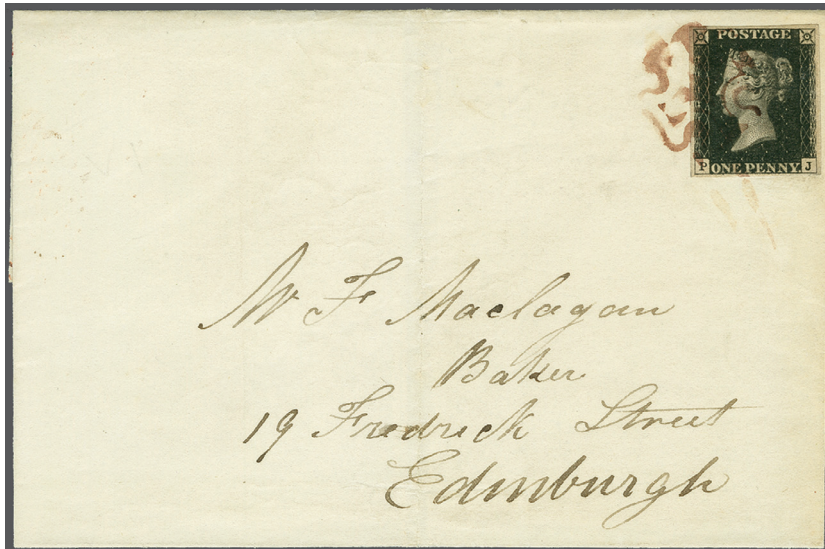 POSTAGE
P ONE PENNY J
Mr F Maclagan
Baker
19 Fredrick Street
Edinburgh